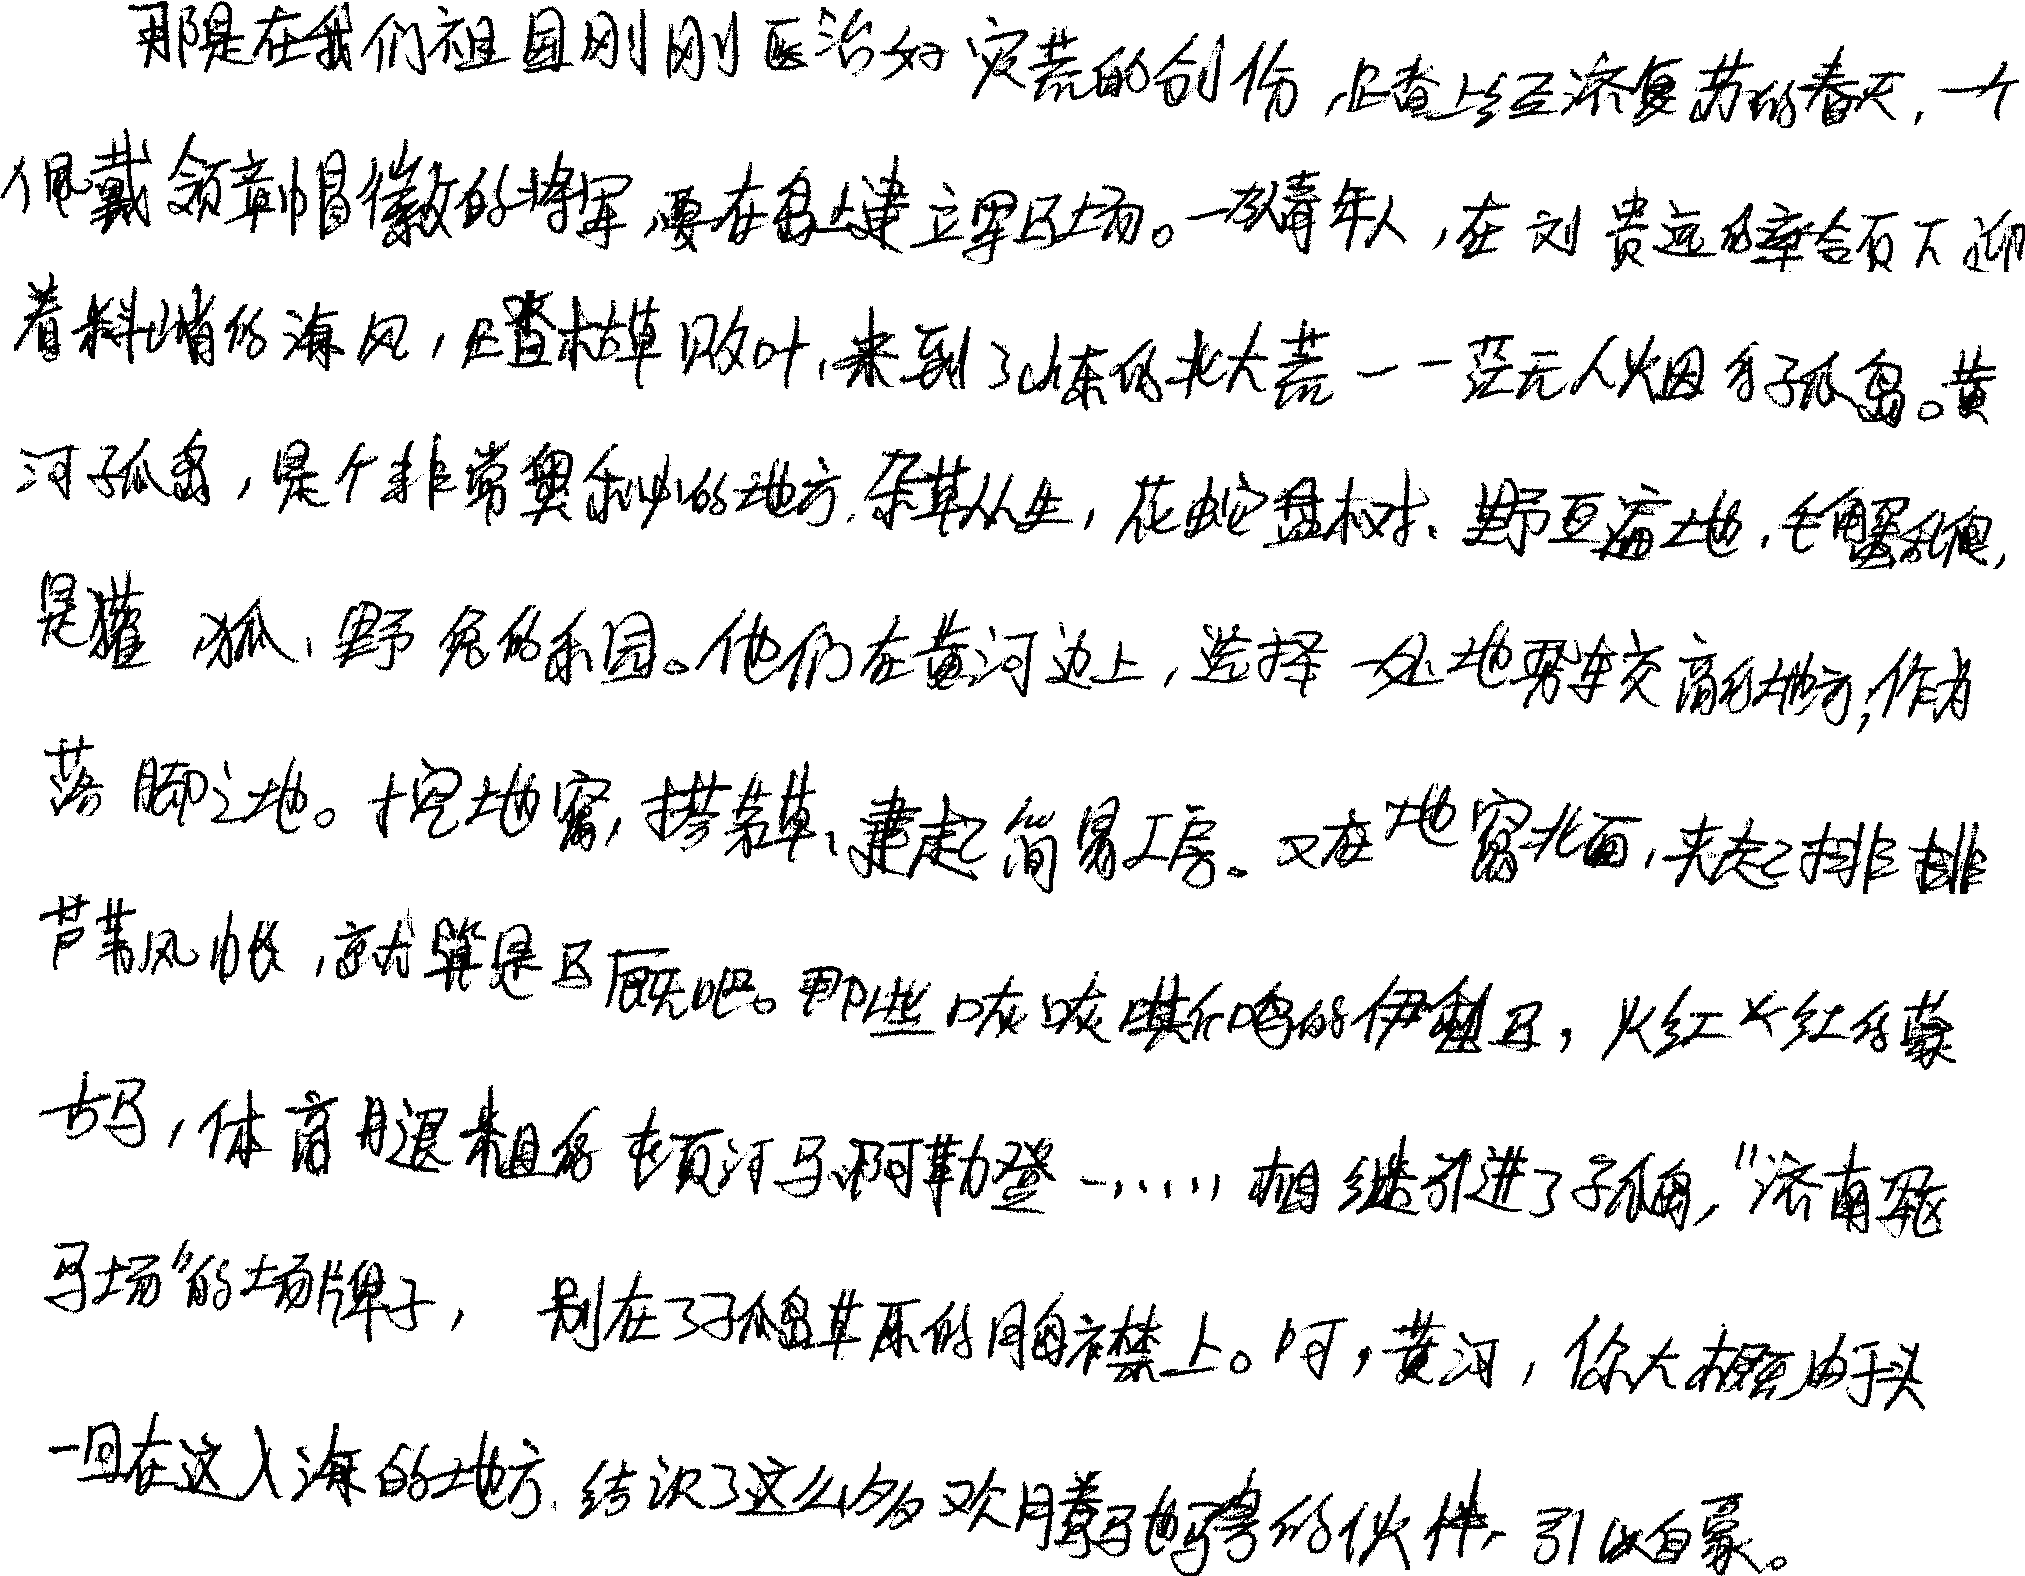 那是在我们祖国刚刚医治好灾荒的创伤，踏上经济复苏的春天，一个
佩戴领章帽徽的将军，要在岛上建立军马场。一被青年人，在刘贵远的率领下迎
着料峭的海风，踏着枯草败叶，来到了山东的北大荒——荒无人烟的孤岛。黄
河孤岛，是个非常奥秘的地方，杂草从生，花蛇盘树、野豆遍地，毛蟹乱爬，
是獾、狐、野兔的乐园。他们在黄河边上，选择一处地势较高的地方，作为
落脚之地。挖地窝，搭茅草，建起简易工房。又在地窝北面，夹起排排
芦苇风帐，就算是马厩吧。那些咴咴嘶鸣的伊犁马，火红火红的蒙
古马，体高腿粗的顿河马、阿勒登……，相继引进了孤岛，“济南军区
马场”的场牌子，别在了孤岛草原的胸襟上。呵，黄河，你大概由于头
一回在这入海的地方，结识了这么多欢腾驰骋的伙伴，引以自豪。